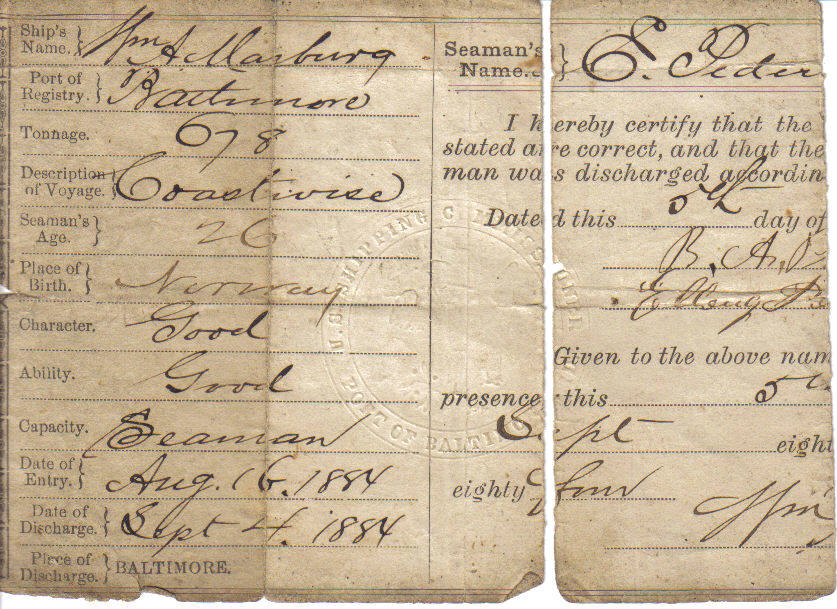 Ship's Name. Wm A Marburg
Port of Registry. Baltimore
Tonnage. 678
Description of Voyage. Coastwise
Seaman's Age. 26
Place of Birth. Norway
Character. Good
Ability. Good
Capacity. Seaman
Date of Entry. Aug. 16. 1884
Date of Discharge. Sept 4. 1884
Place of Discharge. BALTIMORE.
Seaman's Name. E. Peder
I hereby certify that the
stated are correct, and that the
man was discharged accordin
Dated this 5th day of
B. A.
Given to the above nam
presence this 5th
Sept eight
eighty four
Wm
U.S. SHIPPING COMMISSIONER
PORT OF BALTIMORE